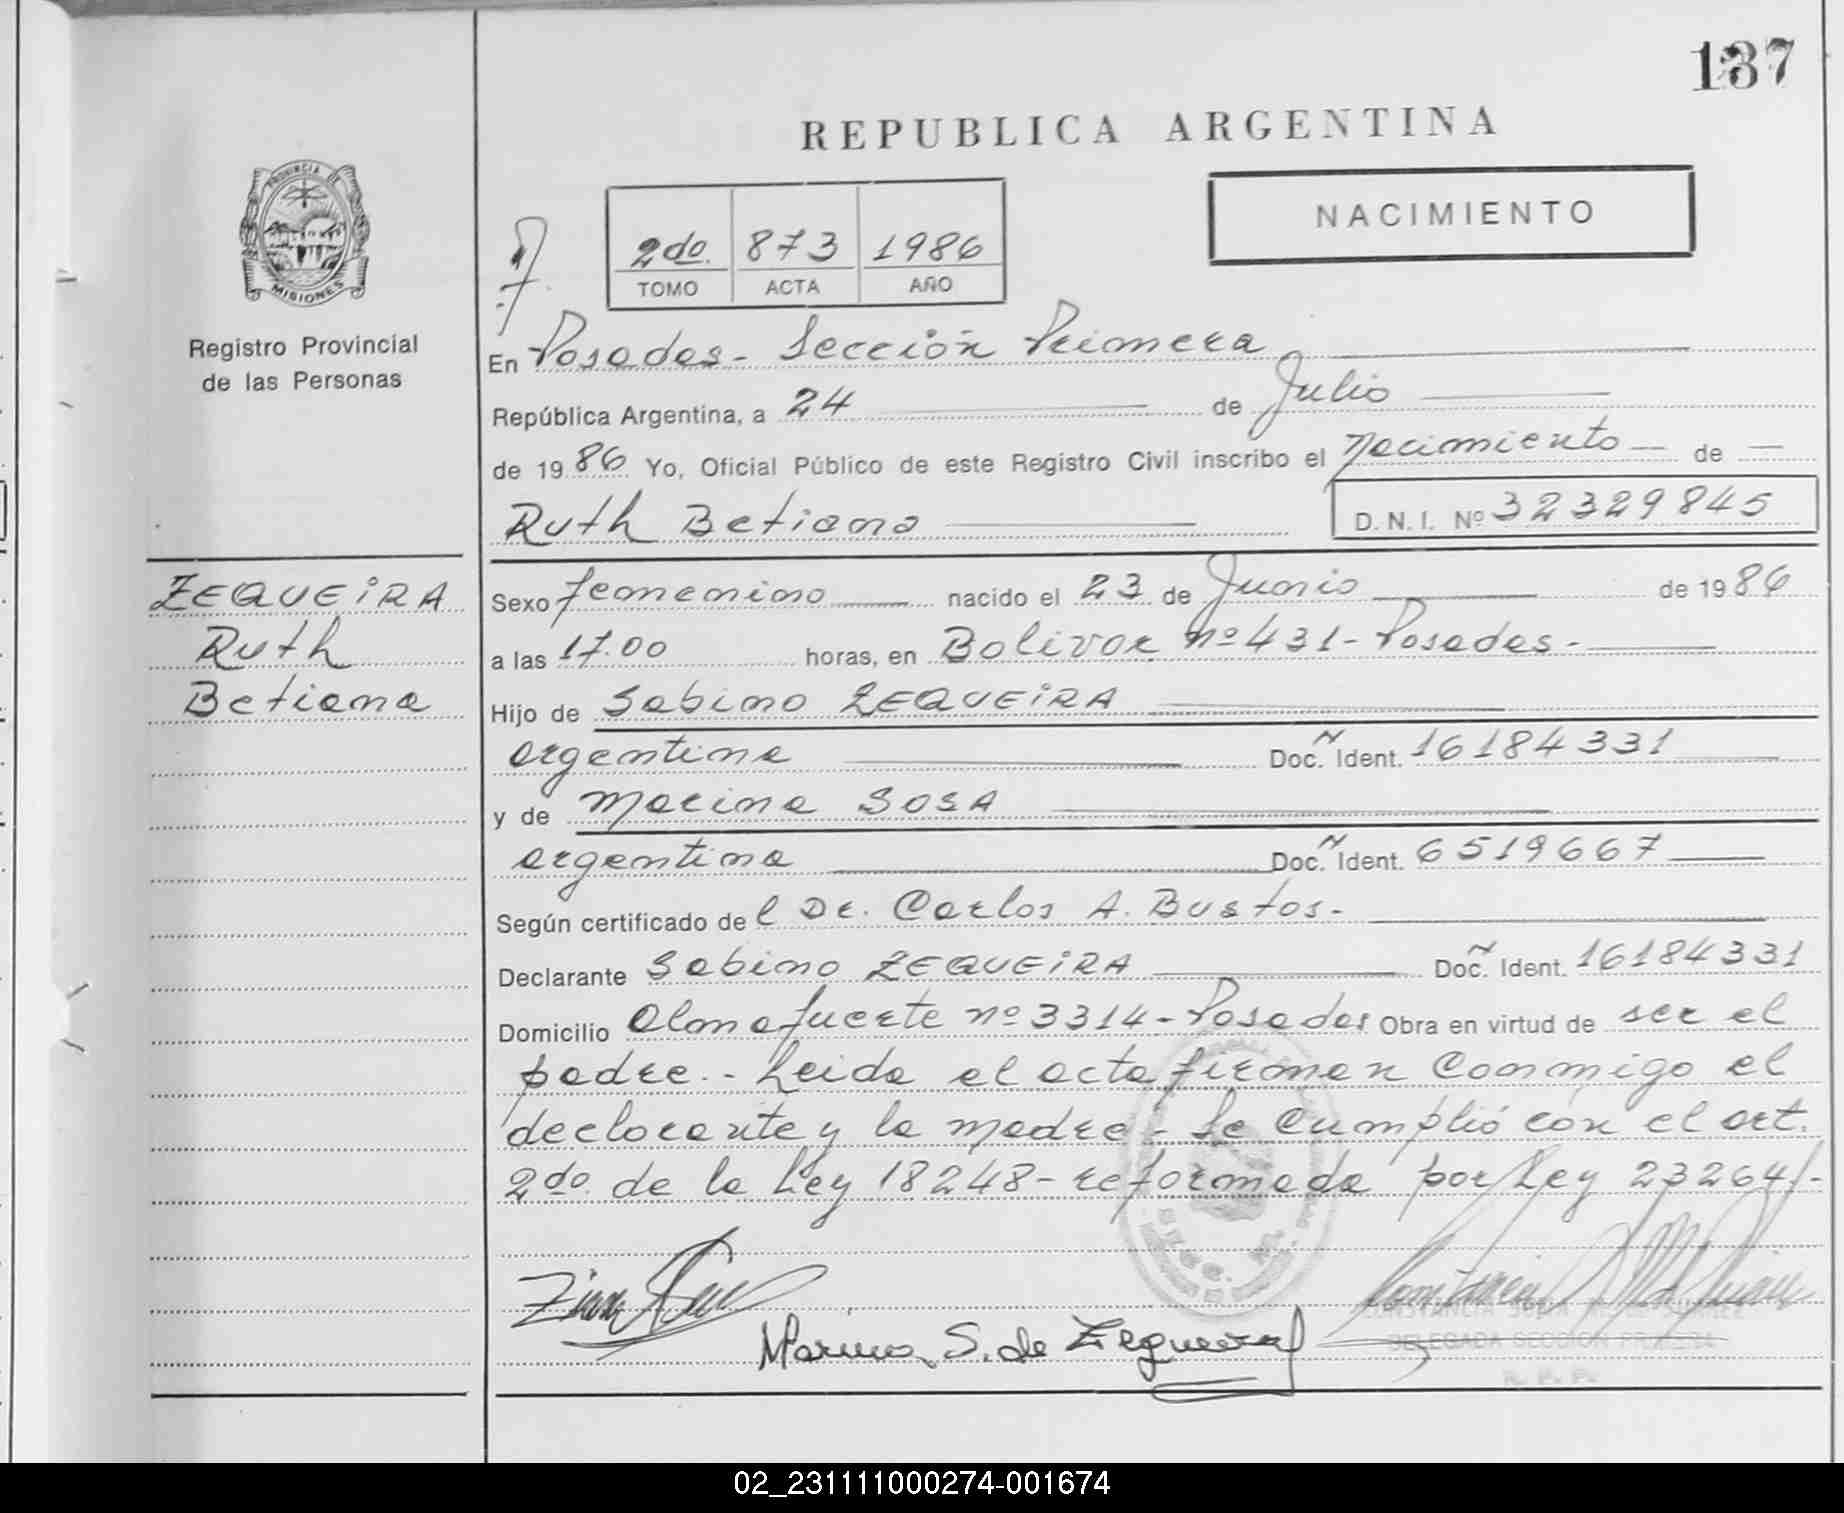 137
REPUBLICA ARGENTINA
NACIMIENTO
2do. 873 1986
TOMO ACTA AÑO
PROVINCIA DE
MISIONES
Registro Provincial
de las Personas
En Posadas - Sección Primera
República Argentina, a 24 de Julio
de 1986 Yo, Oficial Público de este Registro Civil inscribo el Nacimiento — de —
Ruth Betiana D. N. I. Nº 32329845
ZEQUEIRA
Ruth
Betiana
Sexo femenino nacido el 23 de Junio de 1986
a las 17.00 horas, en Bolivar nº 431 - Posadas -
Hijo de Sabino ZEQUEIRA
argentina Doc. Ident. 16184331
y de Marina SOSA
argentina Doc. Ident. 6519667
Según certificado del Dr. Carlos A. Bustos -
Declarante Sabino ZEQUEIRA Doc. Ident. 16184331
Domicilio Almafuerte nº 3314 - Posadas Obra en virtud de ser el
padre. - Leida el acta firman conmigo el
declarante y la madre - Se cumplió con el art.
2do. de la Ley 18248 - reformada por Ley 23264/-
Marina S. de Zequeira
DELEGADA SECCION PRIMERA
R. P. P.
02_231111000274-001674